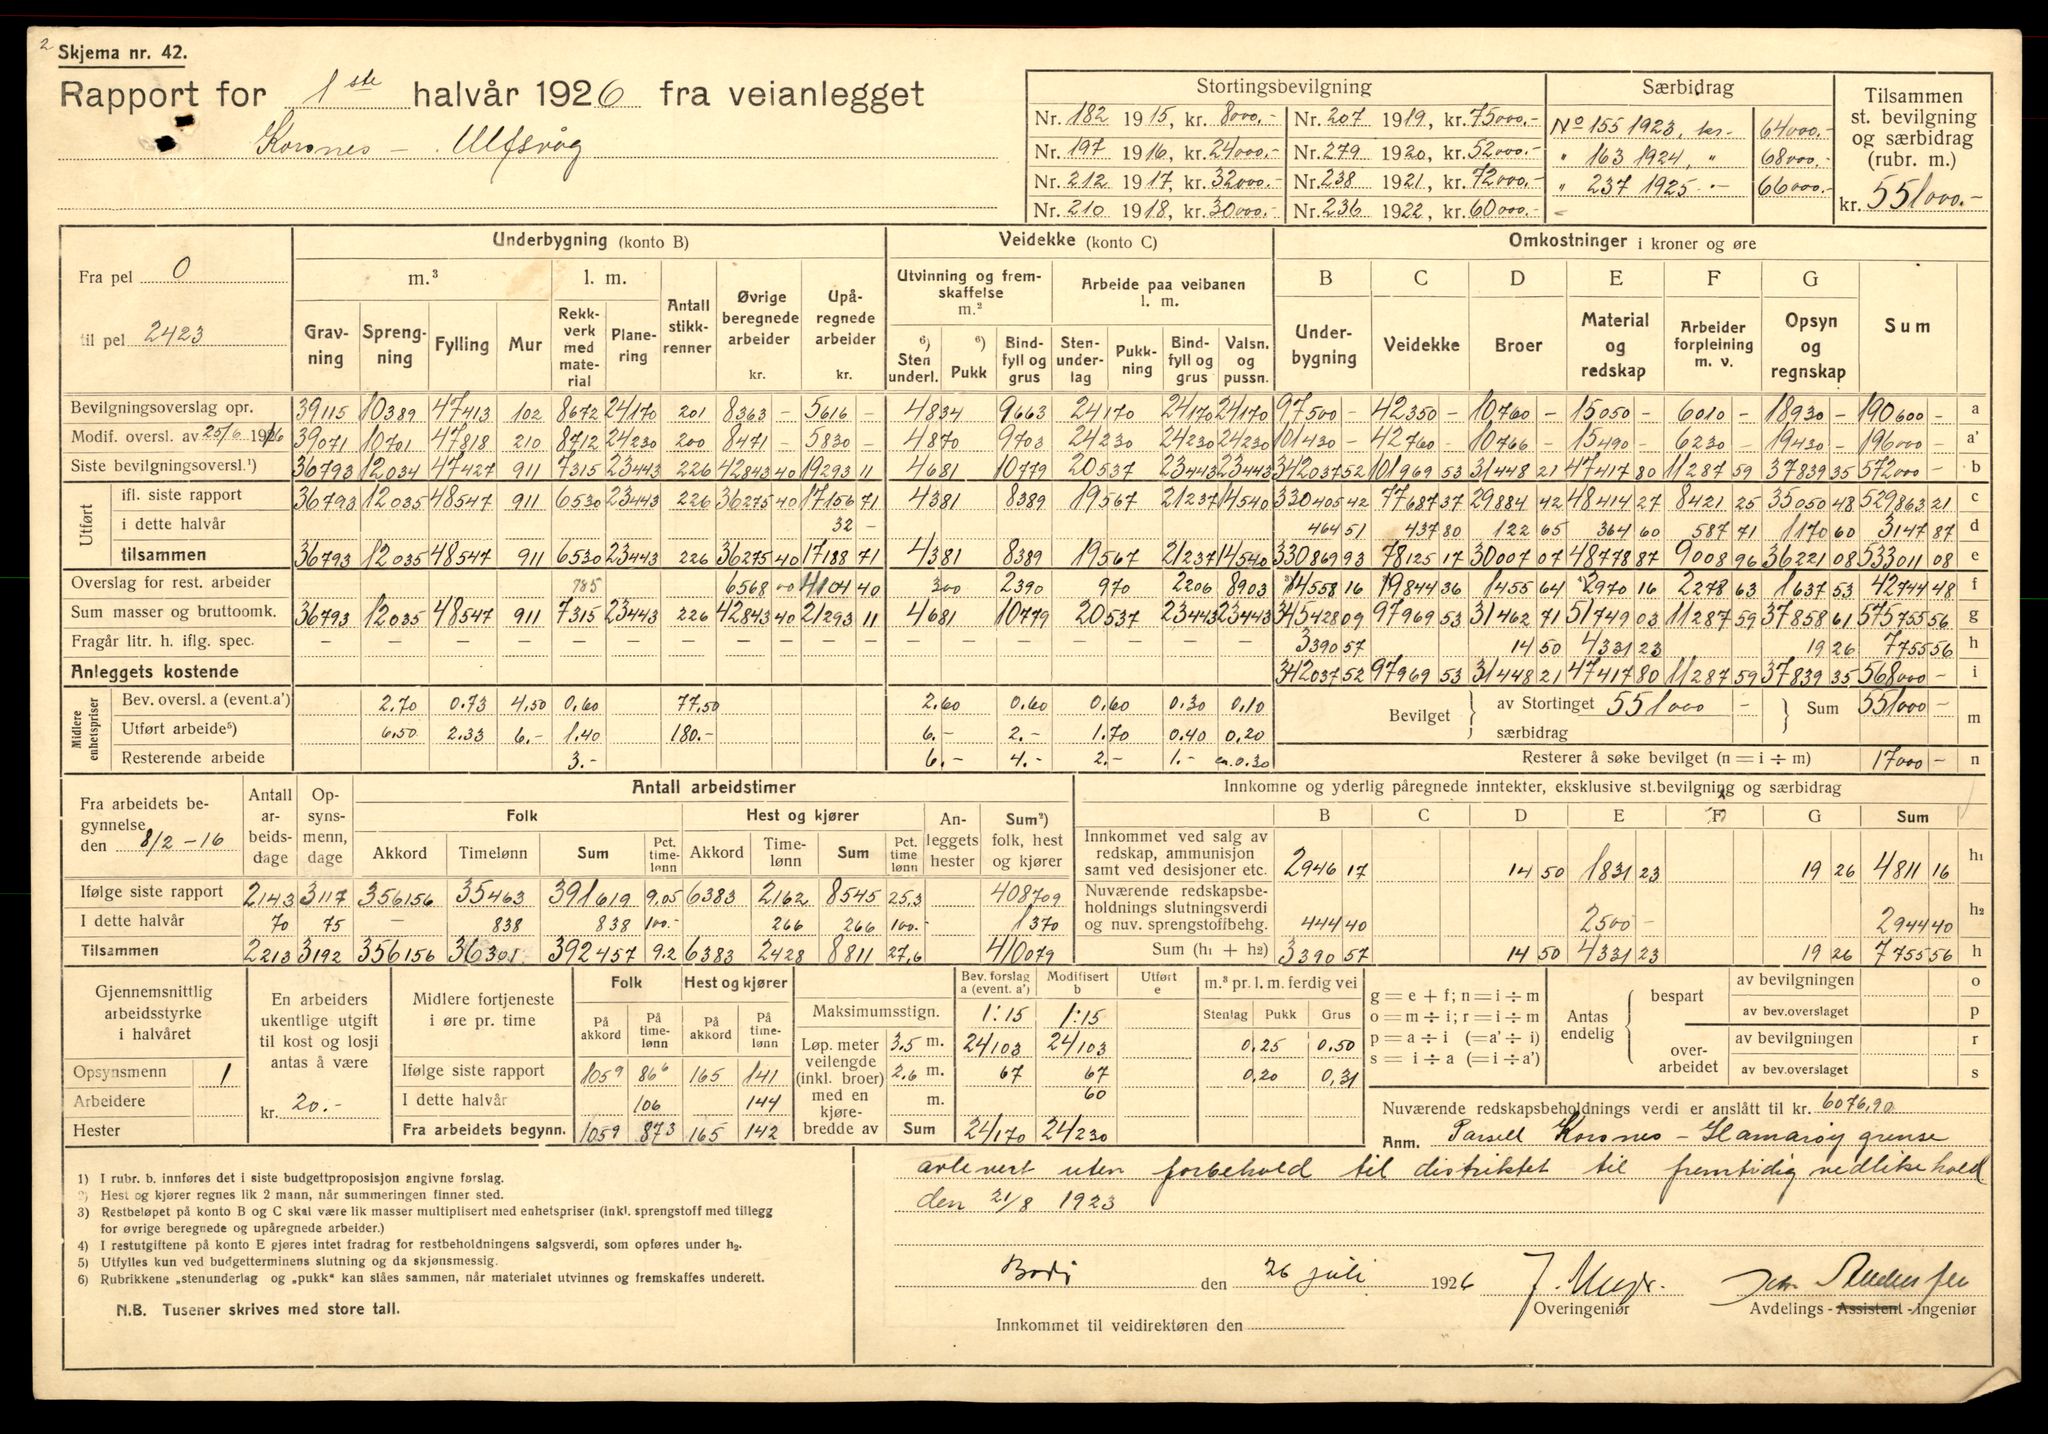 2
Skjema nr. 42.
Rapport for 1ste halvår 1926 fra veianlegget
Korsnes – Ulfsvåg
Stortingsbevilgning
Nr. 182 1915, kr. 8000.- Nr. 207 1919, kr. 75000.-
Nr. 197 1916, kr. 24000.- Nr. 279 1920, kr. 52000.-
Nr. 212 1917, kr. 32000.- Nr. 238 1921, kr. 72000.-
Nr. 210 1918, kr. 30000.- Nr. 236 1922, kr. 60000.-
Særbidrag
No 155 1923, kr. 64000.-
" 163 1924, " 68000.-
" 237 1925 - 66000.-
Tilsammen
st. bevilgning
og særbidrag
(rubr. m.)
kr. 551000.-
Fra pel 0
til pel 2423
Underbygning (konto B)
m.³ l. m.
Gravning Sprengning Fylling Mur Rekkverk med material Planering Antall stikkrenner Øvrige beregnede arbeider kr. Upåregnede arbeider kr.
Veidekke (konto C)
Utvinning og fremskaffelse m.² Arbeide paa veibanen l. m.
6) Sten underl. 6) Pukk Bindfyll og grus Stenunderlag Pukkning Bindfyll og grus Valsn. og pussn.
Omkostninger i kroner og øre
B C D E F G
Underbygning Veidekke Broer Material og redskap Arbeider forpleining m. v. Opsyn og regnskap Sum
Bevilgningsoverslag opr. 39115 10389 47413 102 8672 24170 201 8363 - 5616 - 4834 9663 24170 24170 24170 97500 - 42350 - 10760 - 15050 - 6010 - 18930 - 190600 - a
Modif. oversl. av 25/6 1916 39071 10701 47818 210 8712 24230 200 8471 - 5830 - 4870 9703 24230 24230 24230 101430 - 42760 - 10766 - 15490 - 6230 - 19430 - 196000 - a'
Siste bevilgningsoversl.¹) 36793 12034 47427 911 7315 23443 226 42843 40 19293 11 4681 10779 20537 23443 23443 342037 52 101969 53 31448 21 47417 80 11287 59 37839 35 572000 - b
Utført
ifl. siste rapport 36793 12035 48547 911 6530 23443 226 36275 40 17156 71 4381 8389 19567 21237 14540 330405 42 77687 37 29884 42 48414 27 8421 25 35050 48 529863 21 c
i dette halvår 32 - 464 51 437 80 122 65 364 60 587 71 1170 60 3147 87 d
tilsammen 36793 12035 48547 911 6530 23443 226 36275 40 17188 71 4381 8389 19567 21237 14540 330869 93 78125 17 30007 07 48778 87 9008 96 36221 08 533011 08 e
Overslag for rest. arbeider 785 6568 00 4104 40 300 2390 970 2206 8903 14558 16 19844 36 1455 64 2970 16 2278 63 1637 53 42744 48 f
Sum masser og bruttoomk. 36793 12035 48547 911 7315 23443 226 42843 40 21293 11 4681 10779 20537 23443 23443 345428 09 97969 53 31462 71 51749 03 11287 59 37858 61 575755 56 g
Fragår litr. h. iflg. spec. — — — — — — — — — — — — — — 3390 57 14 50 4331 23 19 26 7755 56 h
Anleggets kostende 342037 52 97969 53 31448 21 47417 80 11287 59 37839 35 568000 - i
Midlere enhetspriser
Bev. oversl. a (event. a') 2.70 0.73 4.50 0.60 77.50 2.60 0.60 0.60 0.30 0.10
Utført arbeide⁵) 6.50 2.33 6.- 1.40 180.- 6.- 2.- 1.70 0.40 0.20
Resterende arbeide 3.- 6.- 4.- 2.- 1.- ca. 0.30
Bevilget av Stortinget 551000 - Sum 551000 - m
særbidrag
Resterer å søke bevilget (n = i ÷ m) 17000 - n
Fra arbeidets begynnelse
den 8/2 - 16
Antall arbeidsdage Opsynsmenn, dage
Antall arbeidstimer
Folk Hest og kjører Anleggets hester Sum²) folk, hest og kjører
Akkord Timelønn Sum Pct. timelønn Akkord Timelønn Sum Pct. timelønn
Ifølge siste rapport 2143 3117 356156 35463 391619 9.05 6383 2162 8545 25.3 408709
I dette halvår 70 75 — 838 838 100.- 266 266 100.- 1370
Tilsammen 2213 3192 356156 36301 392457 9.2 6383 2428 8811 27.6 410079
Innkomne og yderlig påregnede inntekter, eksklusive st.bevilgning og særbidrag
B C D E F G Sum
Innkommet ved salg av
redskap, ammunisjon
samt ved desisjoner etc. 2946 17 14 50 1831 23 19 26 4811 16 h₁
Nuværende redskapsbe-
holdnings slutningsverdi
og nuv. sprengstoffbehg. 444 40 2500 - 2944 40 h₂
Sum (h₁ + h₂) 3390 57 14 50 4331 23 19 26 7755 56 h
Gjennemsnittlig
arbeidsstyrke
i halvåret
Opsynsmenn 1
Arbeidere
Hester
En arbeiders
ukentlige utgift
til kost og losji
antas å være
kr. 20.-
Midlere fortjeneste
i øre pr. time
Folk Hest og kjører
På akkord På timelønn På akkord På timelønn
Ifølge siste rapport 105⁹ 86⁶ 165 141
I dette halvår 106 144
Fra arbeidets begynn. 105⁹ 87³ 165 142
Bev. forslag a (event. a') Modifisert b Utført e
Maksimumsstign. 1:15 1:15
Løp. meter
veilengde
(inkl. broer)
med en
kjøre-
bredde av
3.5 m. 24103 24103
2.6 m. 67 67
m. 60
Sum 24170 24230
m.³ pr. l. m. ferdig vei
Stenlag Pukk Grus
0,25 0,50
0,20 0,31
g = e + f; n = i ÷ m
o = m ÷ i; r = i ÷ m
p = a ÷ i (= a' ÷ i)
s = i ÷ a (= i ÷ a')
Antas endelig
bespart av bevilgningen o
av bev.overslaget p
overarbeidet av bevilgningen r
av bev.overslaget s
Nuværende redskapsbeholdnings verdi er anslått til kr. 6076,90
Anm. Parsell Korsnes – Hamarøy grense
avlevert uten forbehold til distriktet til fremtidig vedlikehold
den 21/8 1923
1) I rubr. b. innføres det i siste budgettproposisjon angivne forslag.
2) Hest og kjører regnes lik 2 mann, når summeringen finner sted.
3) Restbeløpet på konto B og C skal være lik masser multiplisert med enhetspriser (inkl. sprengstoff med tillegg
for øvrige beregnede og upåregnede arbeider.)
4) I restutgiftene på konto E gjøres intet fradrag for restbeholdningens salgsverdi, som opføres under h₂.
5) Utfylles kun ved budgetterminens slutning og da skjønsmessig.
6) Rubrikkene „stenunderlag og „pukk“ kan slåes sammen, når materialet utvinnes og fremskaffes underett.
N.B. Tusener skrives med store tall.
Bodø den 26 juli 1926
Overingeniør
Avdelings - Assistent - Ingeniør
Innkommet til veidirektøren den